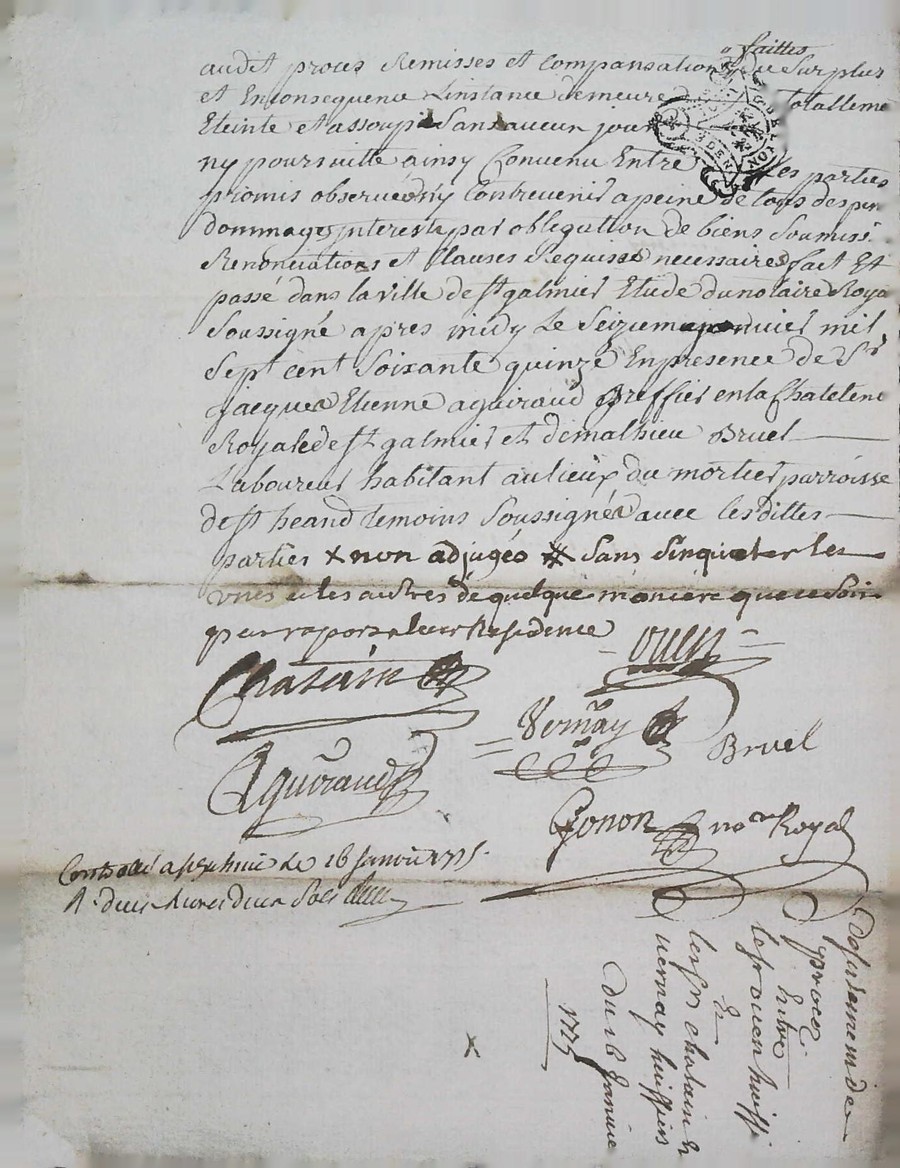 o faittes
audit proces Remises et Compansations o du Surplus
et En Consequence L'instance demeure totalleme
Eteinte et assoupi Sans aucun
ny poursuitte ainsy Convenu Entre les parties
promis observée ny Contrevenir a peine de tous depen
dommages interests par obligation de biens Soumiss
Renonciations et Clauses Requises necessaires fait Et
passé dans la ville de st galmier Etude du notaire Roya
Soussigné apres midy Le Seizieme janvier mil
Sept cent Soixante quinze En presence de Sr
jacques Etienne aguiraud Greffier en la Chatelene
Royale de st galmier et de mathieu Bruel
Laboureur habitant au lieux du mortier parroisse
de st heand temoins Soussignés avec les dittes
parties x non adjugéo # Sans Sinquieter les
unes et les autres de quelque maniere que ce Soit
par raport a leur Residence
ouen
Chatain
Vernay
Bruel
Aguiraud
Gonon nore Royal
Controllé a le 16 Janvier 1775
R. deux Livres deux Sols
desistement de
procez
Entre
le sr ouen huissi
Et
les srs chatain Et
vernay huissiers
du 16 Janvier
1775